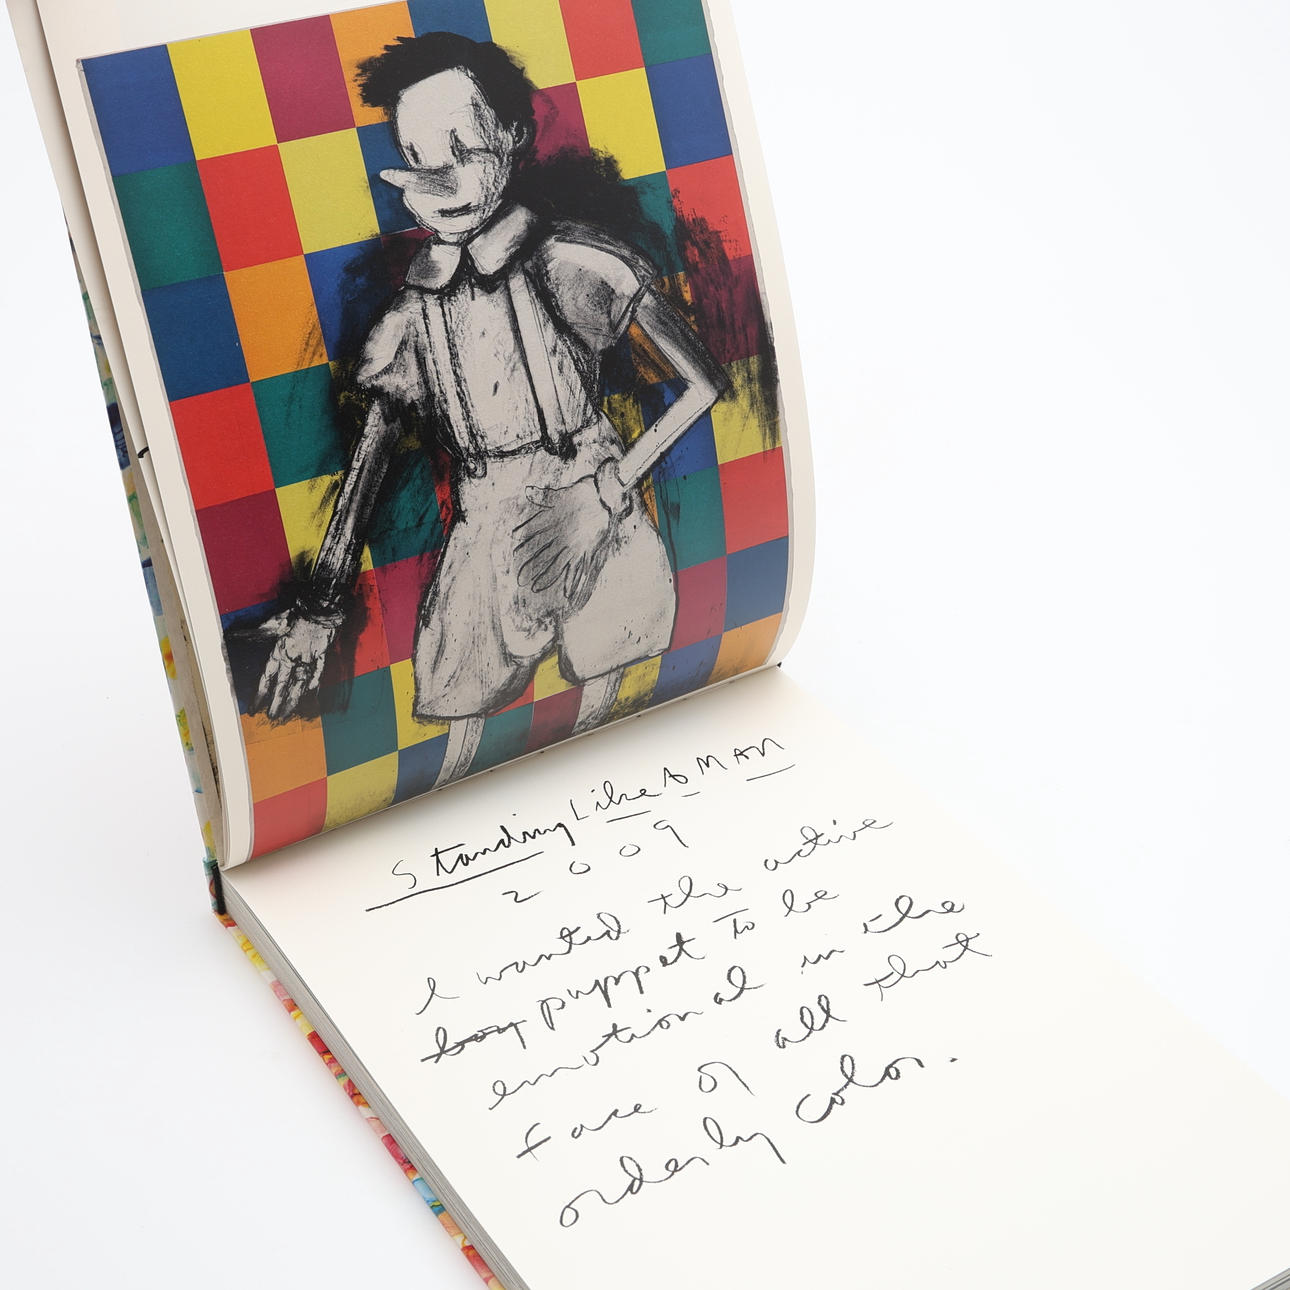 Standing Like A MAN
2009
I wanted the active
boy puppet to be
emotional in the
face of all that
orderly color.